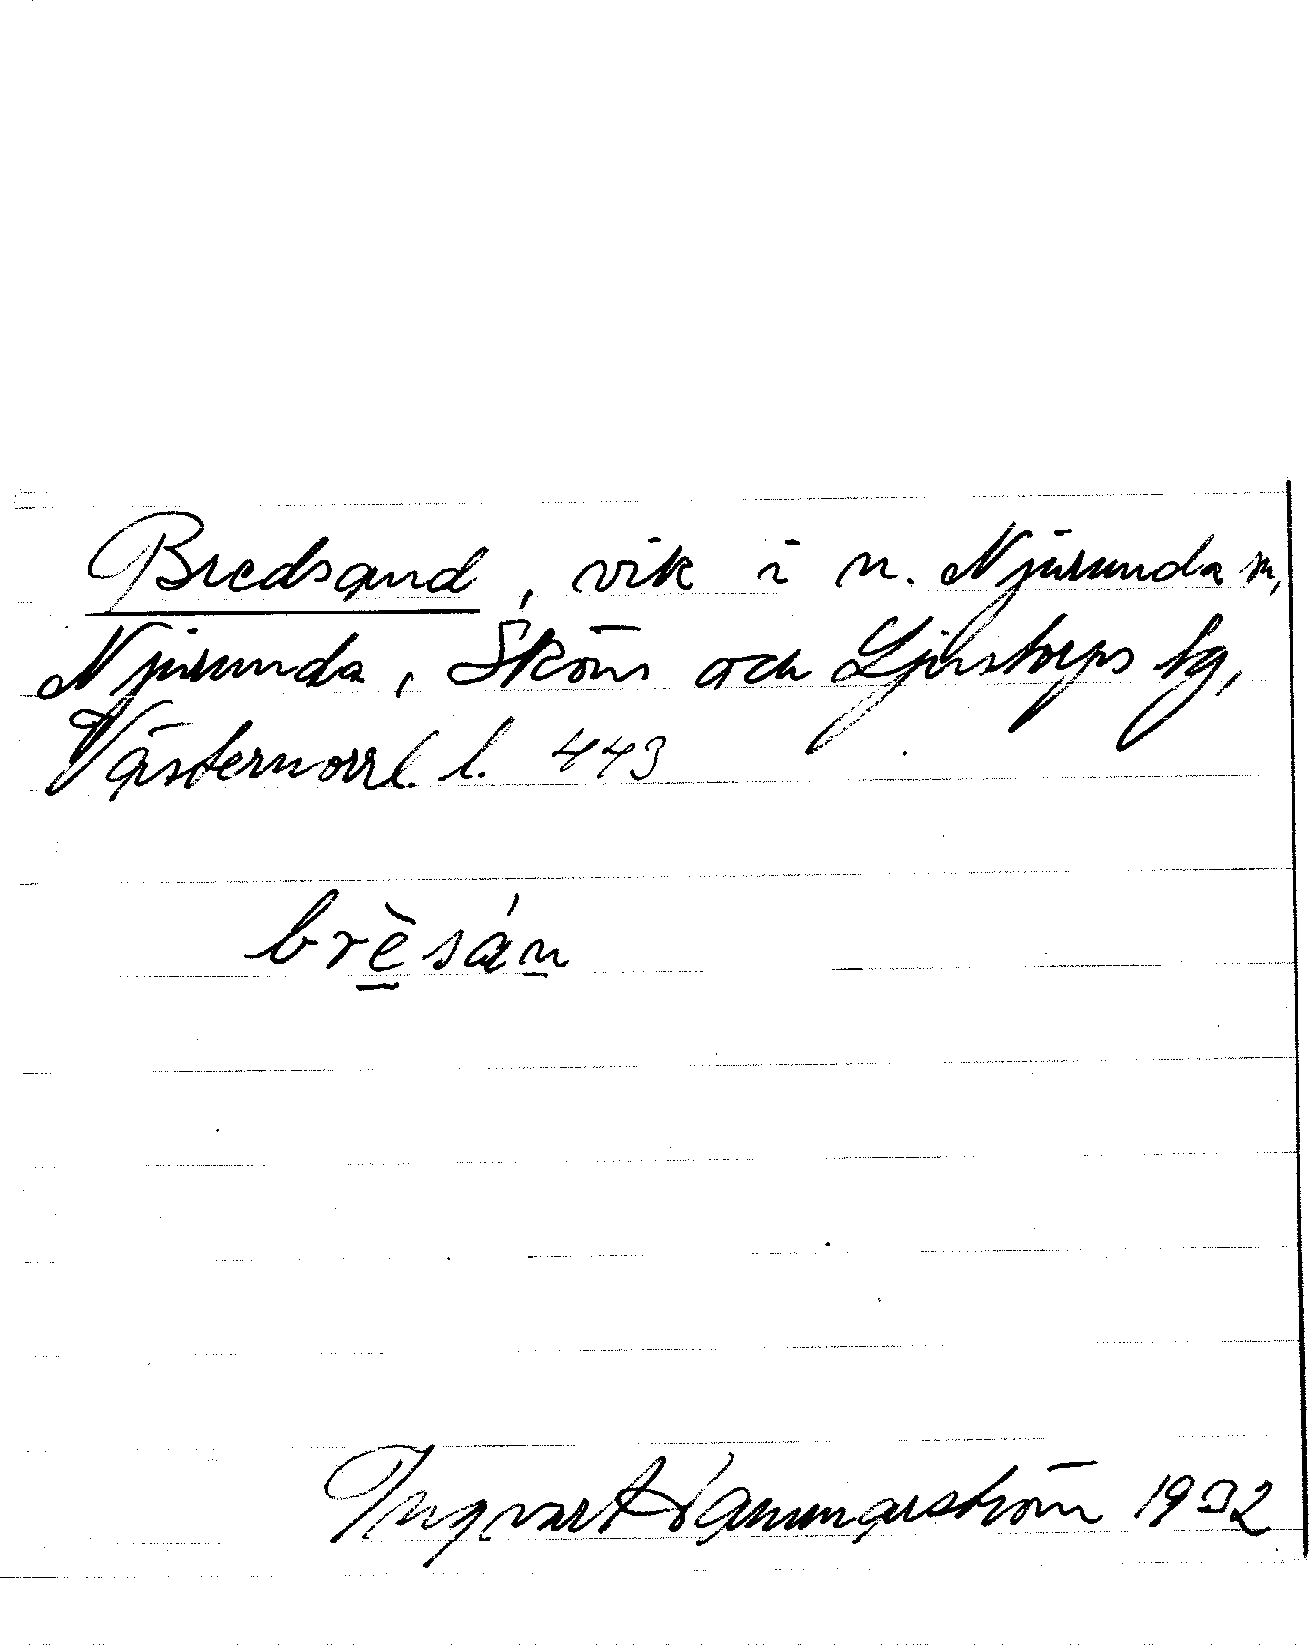 Bredsand, vik i n. Njurunda sn,
Njurunda, Sköns och Ljustorps tg,
Västernorrl. l. 443
brèsán
Ingvart Hammarström 1932